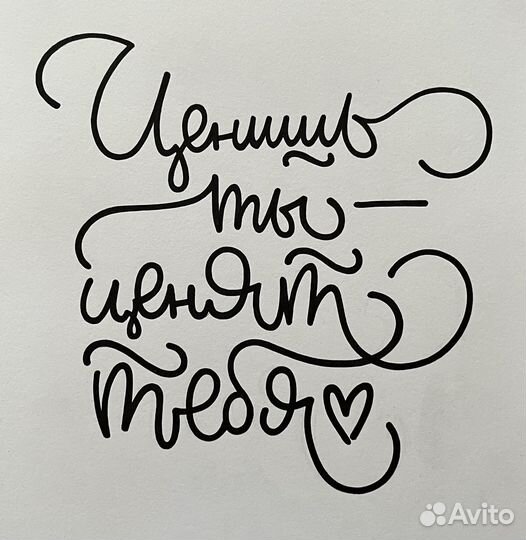 Ценишь
ты —
ценят
тебя ♡
Avito